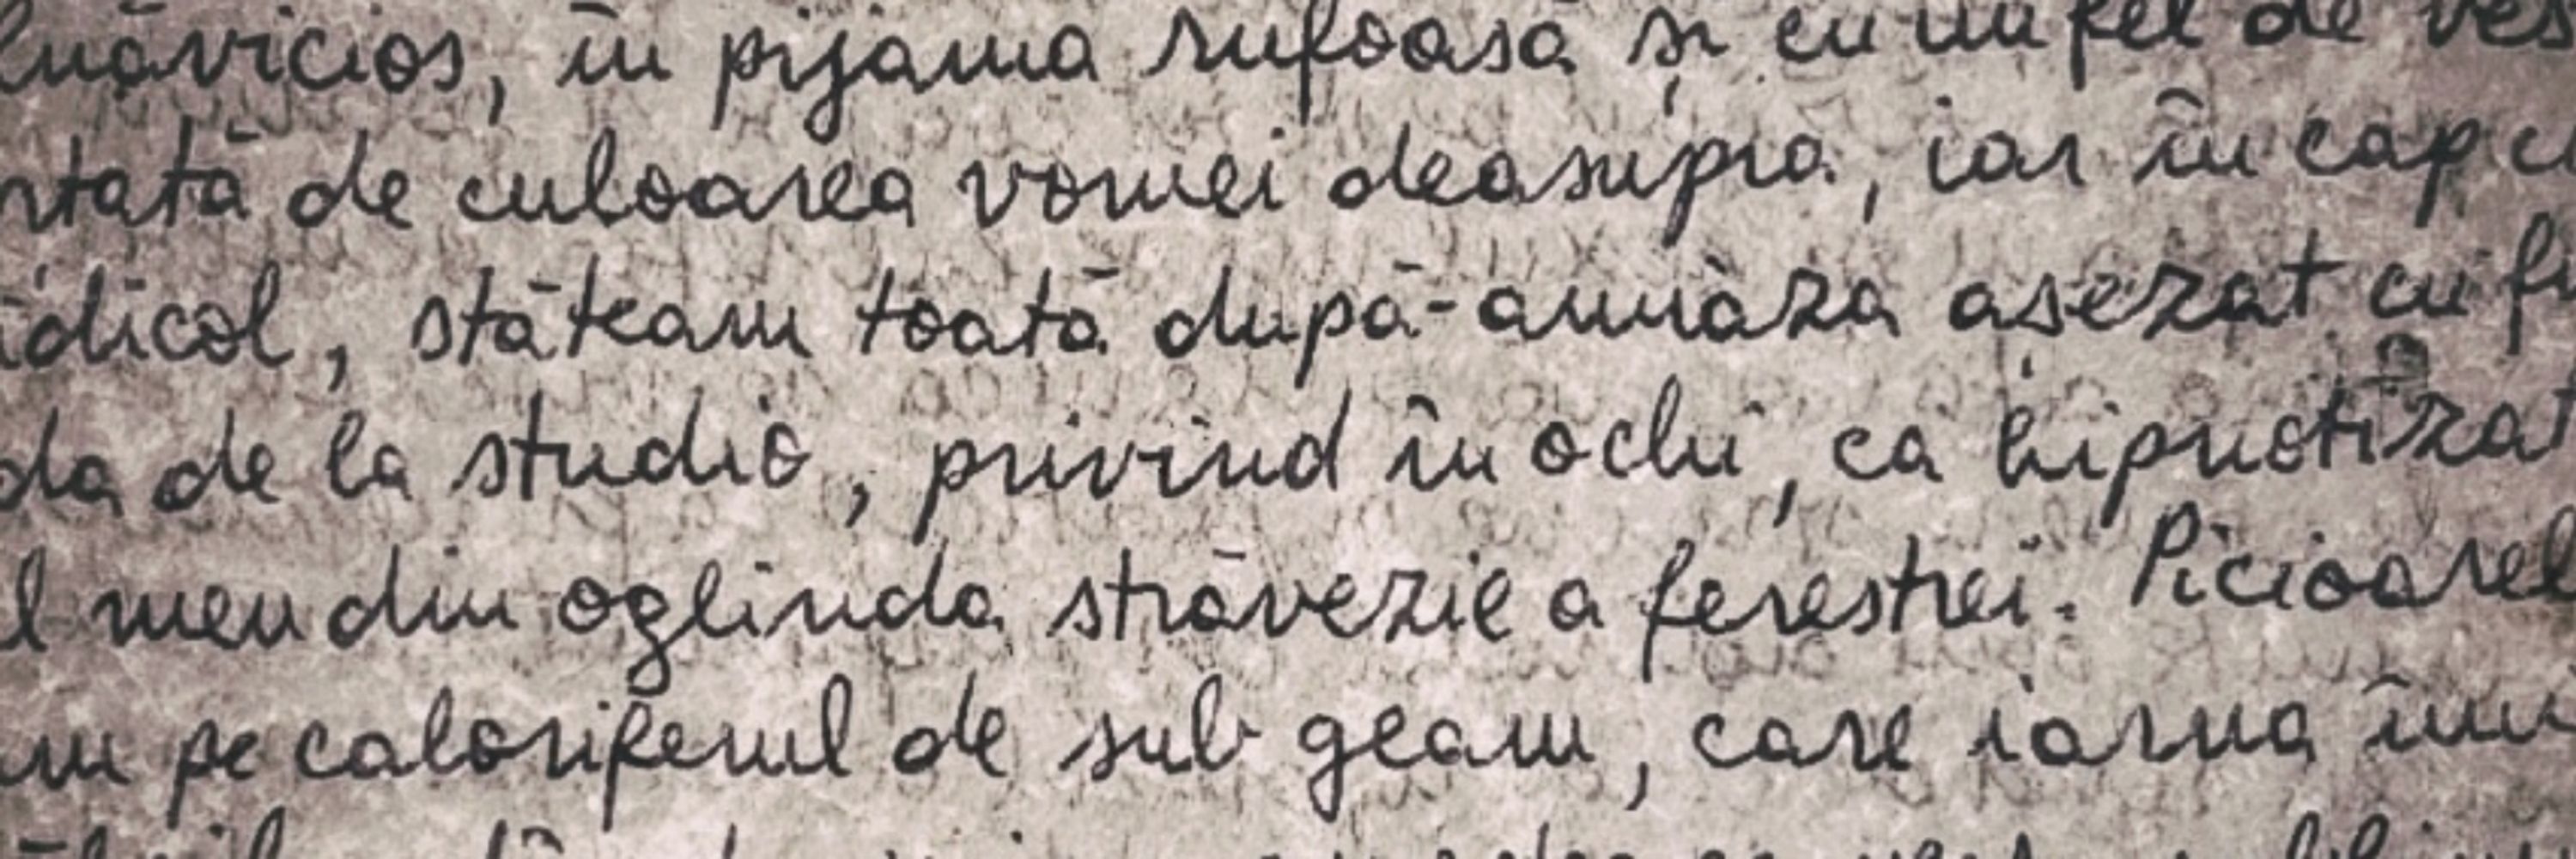 lnăvicios, în pijama sufoasă și cu un fel de ves
ntată de culoarea vomei deasupra, iar în cap c
idicol, stăteam toată după-amiaza așezat cu fu
da de la studio, privind în ochi, ca hipnotizat
l meu din oglinda străvezie a ferestrei. Picioarel
am pe caloriferul de sub geam, care iarna îmi